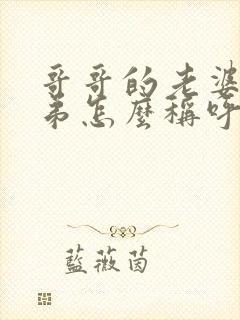 哥哥的老婆
弟怎麼稱呼
藍薇茵